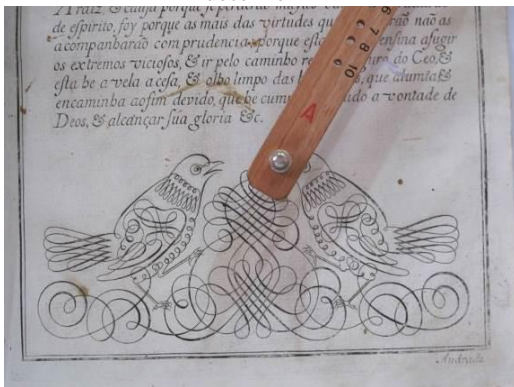 Araiz, & causa porque
de espirito, foy porque as mais das virtudes não as
acompanharão com prudencia, porque ensina afugir
os extremos viciosos, & ir pelo caminho do Ceo, &
esta he a vela acesa, & olho limpo das que alumia &
encaminha aofim devido, que he a vontade de
Deos, & alcançar sua gloria &c.
6 7 8 10
A
Andrade